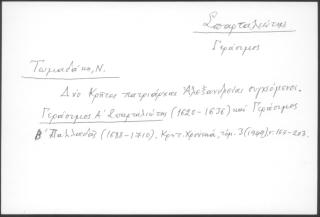 Σπαρταλιώτης
Γεράσιμος
Τωμαδάκη, Ν.
Δύο Κρῆτες πατριάρχαι Ἀλεξανδρείας συγχεόμενοι.
Γεράσιμος Α΄ Σπαρταλιώτης (1620-1636) καί Γεράσιμος
Β΄ Παλλαδᾶς (1688-1710). Κρητ. Χρονικά, τόμ. 3 (1949),